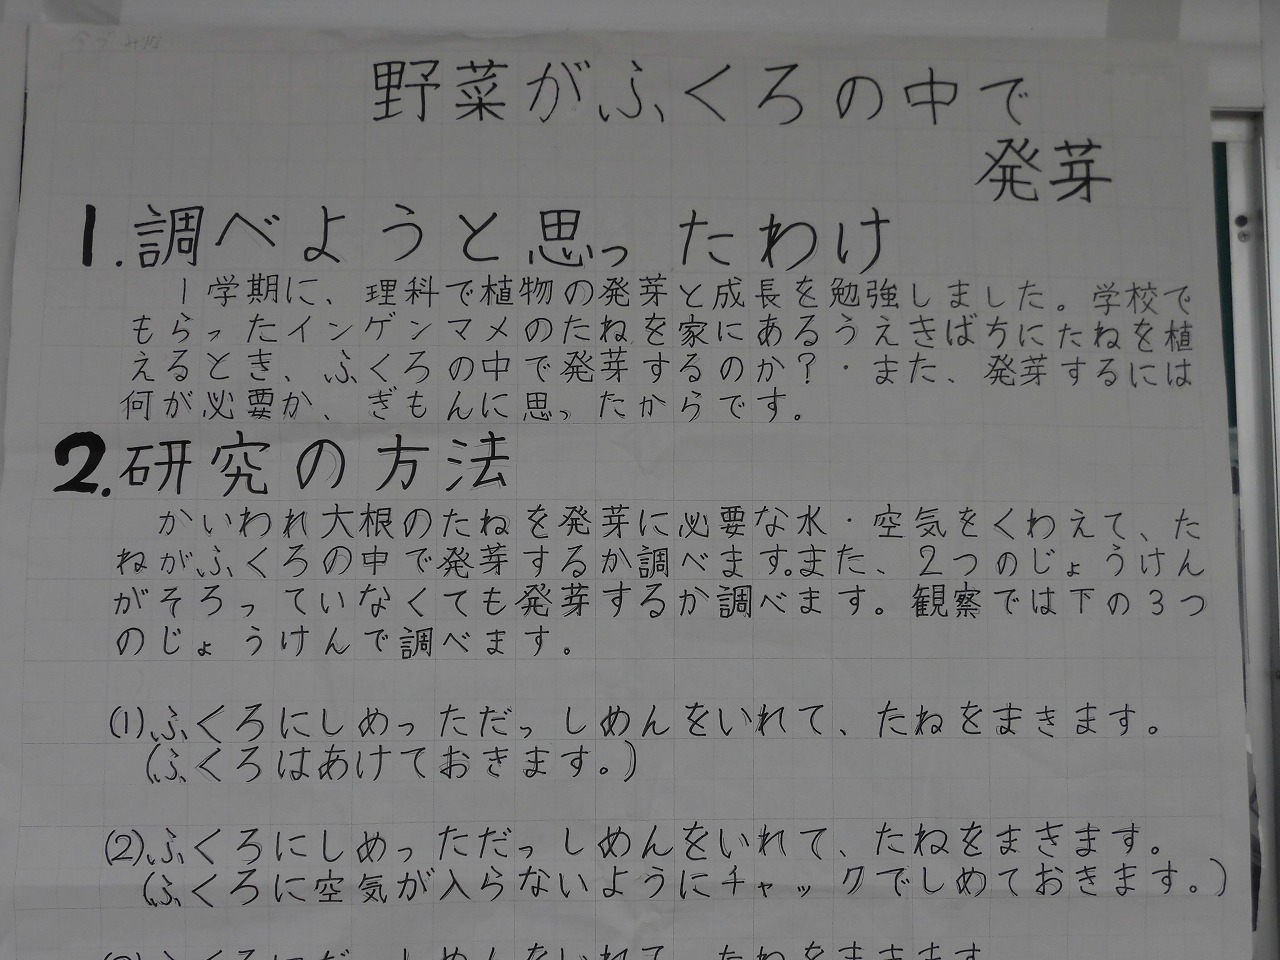 野菜がふくろの中で
発芽
1.調べようと思ったわけ
1学期に、理科で植物の発芽と成長を勉強しました。学校で
もらったインゲンマメのたねを家にあるうえきばちにたねを植
えるとき、ふくろの中で発芽するのか?・また、発芽するには
何が必要か、ぎもんに思ったからです。
2.研究の方法
かいわれ大根のたねを発芽に必要な水・空気をくわえて、た
ねがふくろの中で発芽するか調べます。また、2つのじょうけん
がそろっていなくても発芽するか調べます。観察では下の3つ
のじょうけんで調べます。
(1)ふくろにしめっただっしめんをいれて、たねをまきます。
(ふくろはあけておきます。)
(2)ふくろにしめっただっしめんをいれて、たねをまきます。
(ふくろに空気が入らないようにチャックでしめておきます。)
(3)ふくろにだっしめんをいれて、たねをまきます